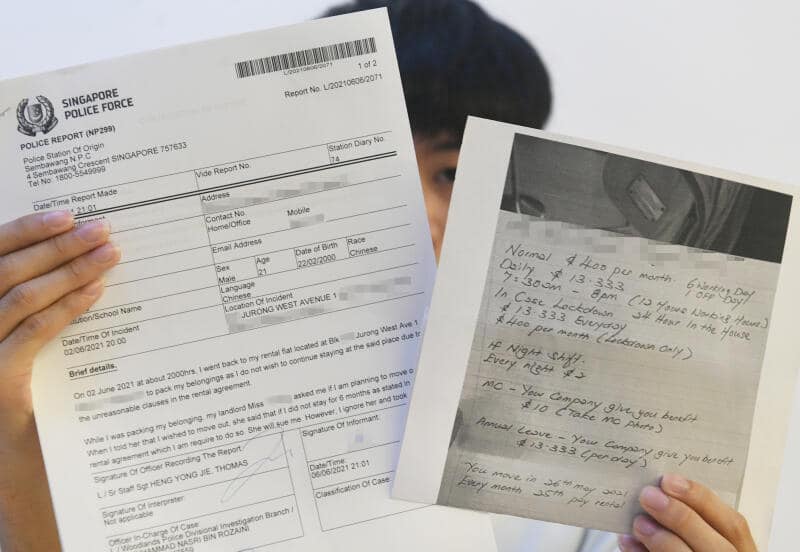 L/20210606/2071
1 of 2
Report No. L/20210606/2071
SINGAPORE
POLICE FORCE
POLICE REPORT (NP299)
Police Station Of Origin
Sembawang N.P.C
4 Sembawang Crescent SINGAPORE 757633
Tel No: 1800-5549999
Vide Report No.
Station Diary No.
74
Date/Time Report Made
21:01
Address
Contact No.
Home/Office
Mobile
Email Address
Sex
Male
Age
21
Date of Birth
22/02/2000
Race
Chinese
Language
Chinese
Institution/School Name
Location Of Incident
JURONG WEST AVENUE 1
Date/Time Of Incident
02/06/2021 20:00
Brief details.
On 02 June 2021 at about 2000hrs, I went back to my rental flat located at Blk Jurong West Ave 1
to pack my belongings as I do not wish to continue staying at the said place due to
the unreasonable clauses in the rental agreement.
While I was packing my belonging, my landlord Miss asked me if I am planning to move o
When I told her that I wished to move out, she said that if I did not stay for 6 months as stated in
rental agreement which I am require to do so. She will sue me. However, I ignore her and took
Signature Of Officer Recording The Report
L / Sr Staff Sgt HENG YONG JIE, THOMAS
Signature Of Informant:
Signature Of Interpreter:
Not applicable
Date/Time:
06/06/2021 21:01
Officer In-Charge Of Case:
L / Woodlands Police Divisional Investigation Branch /
MOHAMMAD NASRI BIN ROZAINI
Classification Of Case:
Normal $400 per month. 6 Working Day
Daily $13.333 1 OFF Day
7:30am - 8pm (12 Hours Working Hours)
In Case Lockdown 24 Hour In the House
$13.333 Everyday
$400 per month (Lockdown Only)
If Night Shift.
Every night $2
MC - Your Company give you benefit
$10 (Take MC photo)
Annual Leave - Your Company give you benefit
$13.333 (per day)
You move in 26th may 2021
Every month 25th pay rental